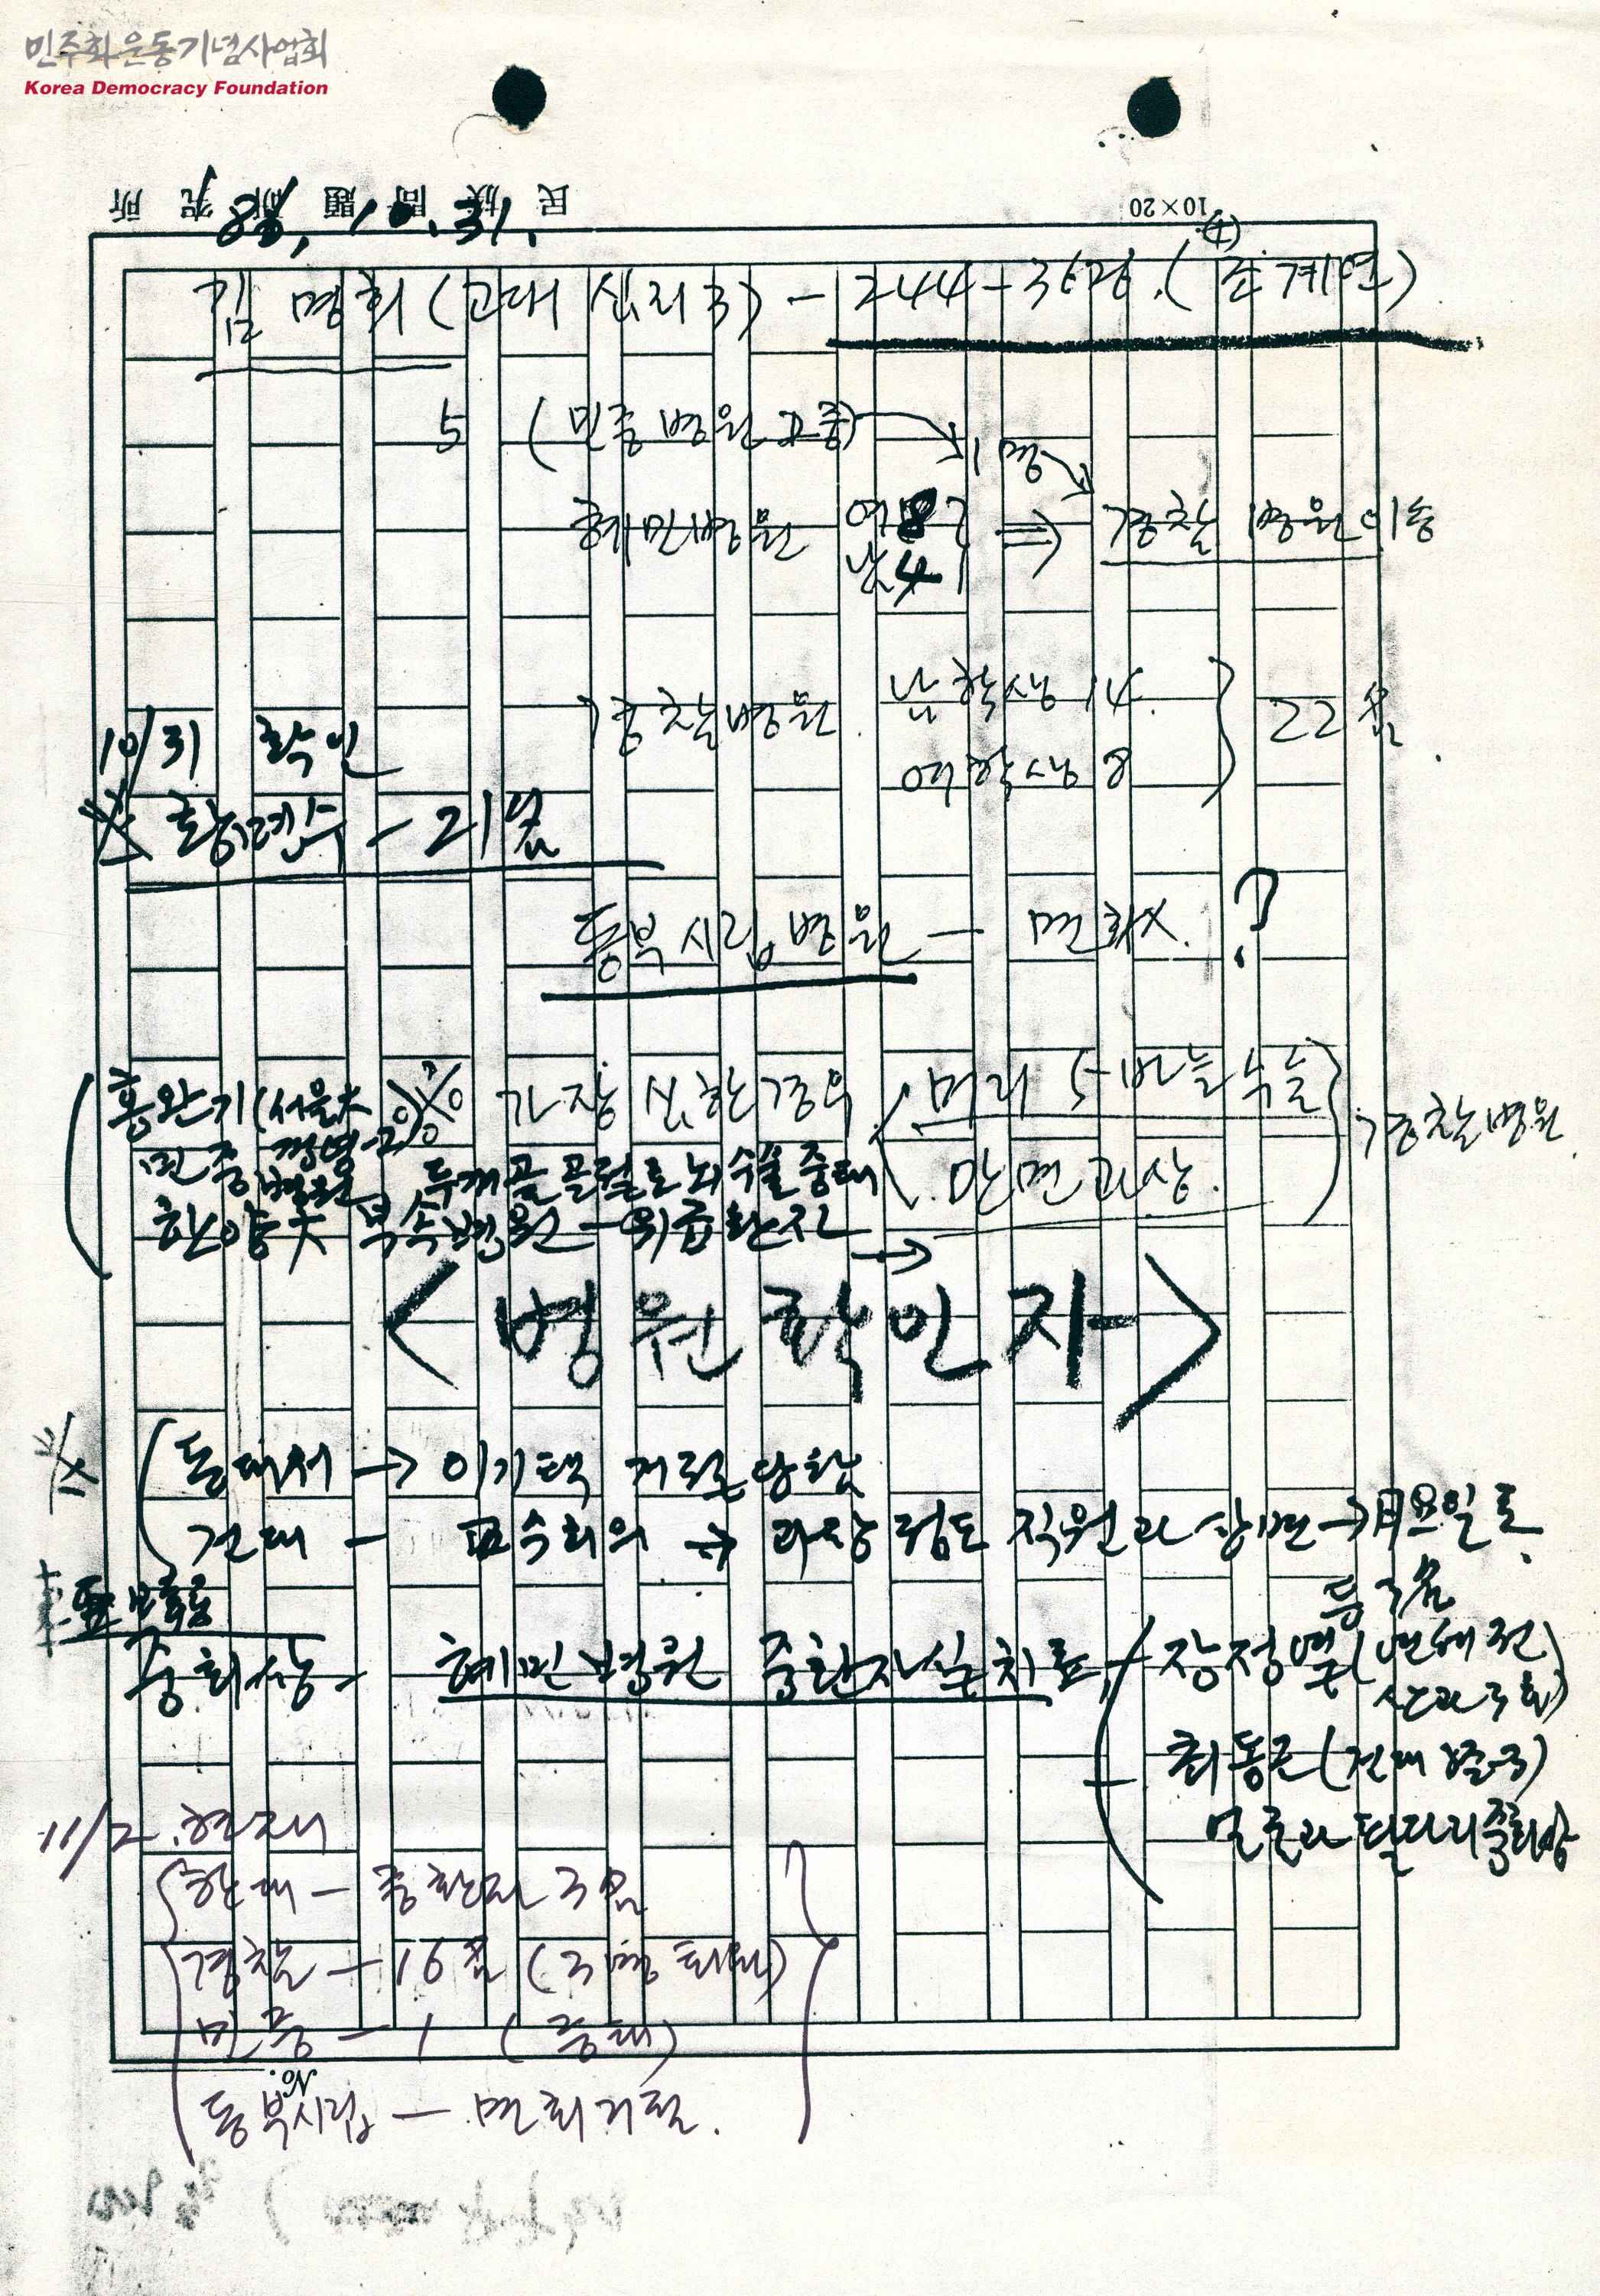 민주화운동기념사업회
Korea Democracy Foundation
民族問題研究所
10×20
86, 10. 31.
김명회 (고대 심리3) - 244-3678 (조계연)
5 (민중병원 고흥) → 1명
혜민병원 여8 남4 ⇒ 경찰병원 이송
경찰병원 남학생 14. 여학생 8 22명
10/31 확인
황현수 - 21명
동부시립병원 - 면회X. ?
홍완기 (서울大 경영-2) ※ 가장 심한 경우 머리 5바늘 수술 경찰병원
민중병원 두개골골절로 뇌수술 중태 안면화상.
한양大 부속병원 - 위급환자 →
<병원확인자>
동대서 → 이기택 저지로 당함
건대 - 교수회의 → 과장 정도 직원과 상면 → 月요일로
송회상 - 혜민병원 중환자실 치료 장정열 (연세 전산과 3회) 등 3명
최동근 (건대 3)
얼굴과 팔다리 중화상
11/2 현재
한대 - 중환자 3명
경찰 - 16명 (3명 퇴원)
민중 - 1 (중태)
No.
동부시립 - 면회거절.